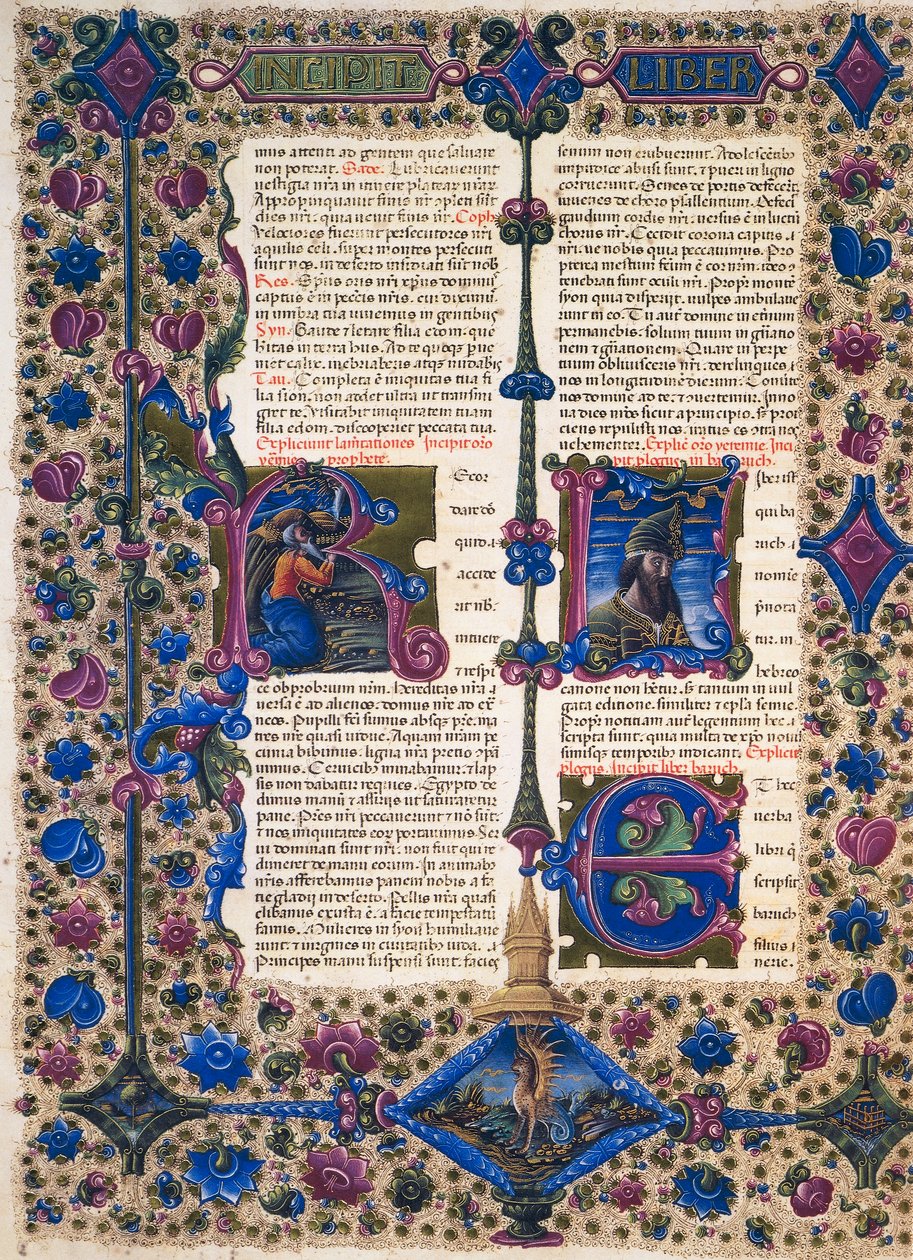 INCIPIT
LIBER
mus attenti ad gentem que saluare
non poterat. Sade. Lubricauerunt
uestigia nr̄a in itinere platear nr̄ar.
Appropinquauit finis nr̄. ꝯpleti sūt
dies nr̄i. quia uenit finis nr̄. Coph.
Velociores fuerunt persecutores nr̄i
aquilis celi. super montes persecuti
sunt nos. in deserto insidiati sūt nob̄
Res. Sp̄us oris nr̄i xp̄us dominus
captus ē in pecc̄is nr̄is. cui diximus
in umbra tua uiuemus in gentibus
Syn. Gaude ⁊ letare filia edom. que
hitas in terra hus. Ad te quoqꝫ ꝑue
niet calix. inebriaberis atqꝫ nudab̄is
Tau. Completa ē iniquitas tua fi
lia sion. non addet ultra ut transmi
gret te. Visitabit iniquitatem tuam
filia edom. discooperiet peccata tua.
Expliciunt lam̄tationes Incipit or̄o
yeremie prophete.
Recor
dare dn̄e
quid a
accide
rit nb̄.
intuere
⁊ respi
ce obprobrium nr̄m. Hereditas nr̄a
uersa ē ad alienos. domus nr̄e ad ex̄t
neos. Pupilli fc̄i sumus absqꝫ pr̄e. ma
tres nr̄e quasi uidue. Aquam nr̄am pe
cunia bibimus. ligna nr̄a precio ꝯpa
uimus. Ceruicibꝫ minabamur. ⁊ lap
sis non dabatur requies. Egypto de
dimus manū ⁊ assyriis ut saturaremur
pane. Pr̄es nr̄i peccauerunt ⁊ nō sūt.
⁊ nos iniquitates eor̄ portauimus. Ser
ui dominati sunt nr̄i. non fuit qui re
dimeret de manu eorum. In animabꝫ
nr̄is afferebamus panem nobis a fa
cie gladii in deserto. Pellis nr̄a quasi
clibanus exusta ē. a facie tempestatū
famis. Mulieres in syon humiliaue
runt. ⁊ uirgines in ciuitatibꝫ iuda.
Principes manu suspensi sunt. facies
senum non erubuerunt. Adolescētibꝫ
impudice abusi sunt. ⁊ pueri in ligno
corruerunt. Senes de portis defecēt.
iuuenes de choro psallentium. Defecit
gaudium cordis nr̄i. uersus ē in luctū
chorus nr̄. Cecidit corona capitis
nr̄i. ue nobis quia peccauimus. Pro
pterea mestum fc̄m ē cor nr̄m. ideo ꝯ
tenebrati sunt oculi nr̄i. Propꝫ montē
syon quia disperiit. uulpes ambulaue
runt in eo. Tu aut̄ domine in et̄num
permanebis. solium tuum in gn̄atio
nem ⁊ gn̄ationem. Quare in perpe
tuum obliuisceris nr̄i. derelinques
nos in longitudinē dierum. Conūte
nos domine ad te. ⁊ ꝯuertemur. Inno
ua dies nr̄os sicut a principio. sꝫ proi
ciens repulisti nos. iratus es ꝯtra nos
uehementer. Explic̄ or̄o yeremie. Inci
pit ꝓlogus in baruch.
Iber ist
qui ba
ruch
nomīe
p̄nota
tur. in
hebreo
canone non hētur. sꝫ tantum in uul
gata editione. similiter ⁊ ep̄la iemie.
Propꝫ noticiam aut̄ legentum hec
scripta sunt. quia multa de xp̄o noui
simisqꝫ temporibꝫ indicant. Explicit
ꝓlogus. Incipit liber baruch.
T hec
uerba
libri q̄
scripsit
baruch
filius
nerie.